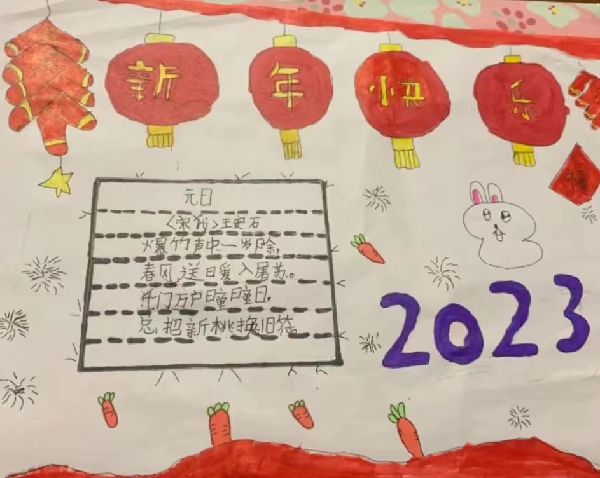 新年快乐
元日
〈宋代〉王安石
爆竹声中一岁除,
春风送日暖入屠苏。
千门万户曈曈日,
总把新桃换旧符。
2023